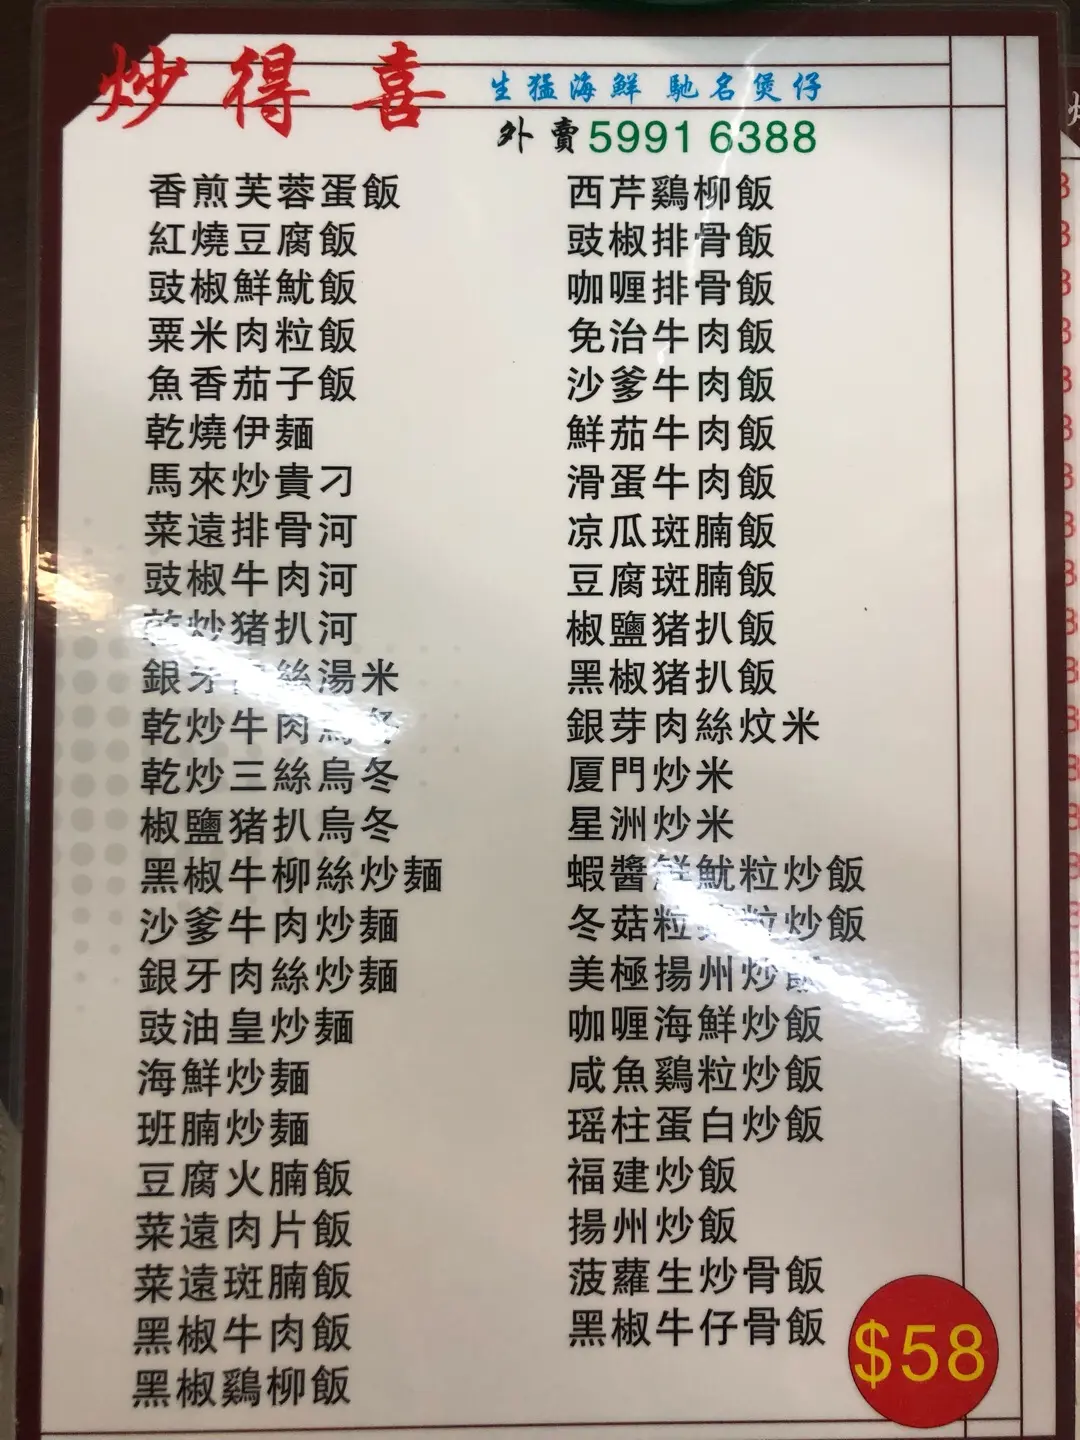 炒得喜
生猛海鮮 馳名煲仔
外賣59916388
香煎芙蓉蛋飯
紅燒豆腐飯
豉椒鮮魷飯
粟米肉粒飯
魚香茄子飯
乾燒伊麵
馬來炒貴刁
菜遠排骨河
豉椒牛肉河
乾炒猪扒河
銀牙 絲湯米
乾炒牛肉烏冬
乾炒三絲烏冬
椒鹽猪扒烏冬
黑椒牛柳絲炒麵
沙爹牛肉炒麵
銀牙肉絲炒麵
豉油皇炒麵
海鮮炒麵
班腩炒麵
豆腐火腩飯
菜遠肉片飯
菜遠斑腩飯
黑椒牛肉飯
黑椒鷄柳飯
西芹鷄柳飯
豉椒排骨飯
咖喱排骨飯
免治牛肉飯
沙爹牛肉飯
鮮茄牛肉飯
滑蛋牛肉飯
凉瓜斑腩飯
豆腐斑腩飯
椒鹽猪扒飯
黑椒猪扒飯
銀芽肉絲炆米
厦門炒米
星洲炒米
蝦醬鮮魷粒炒飯
冬菇粒 粒炒飯
美極揚州炒飯
咖喱海鮮炒飯
咸魚鷄粒炒飯
瑶柱蛋白炒飯
福建炒飯
揚州炒飯
菠蘿生炒骨飯
黑椒牛仔骨飯
$58